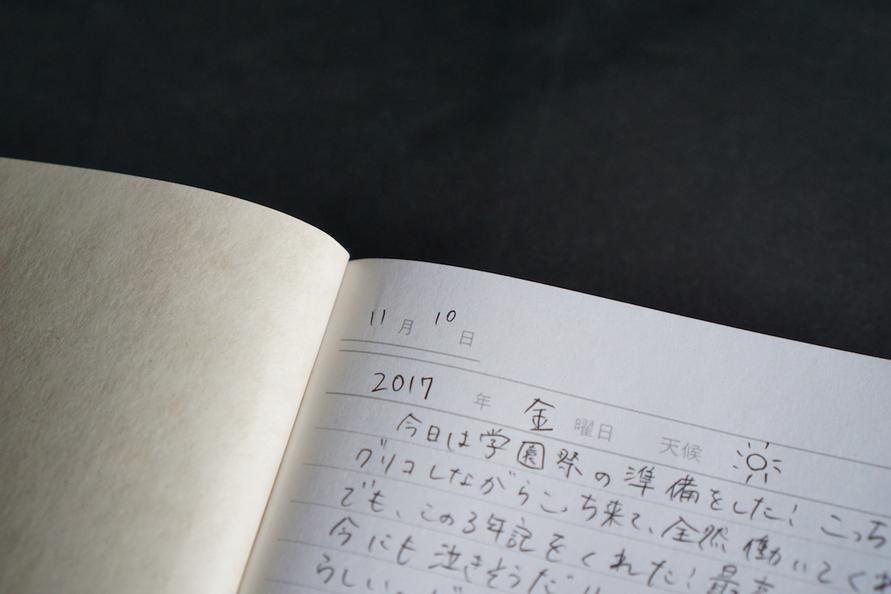 11月10日
2017年 金曜日 天候
今日は学園祭の準備をした! こっち
グリコしながらこっち来て、全然働いてくれ
でも、この3年記をくれた! 最高
今にも泣きそうだ!!
らしい